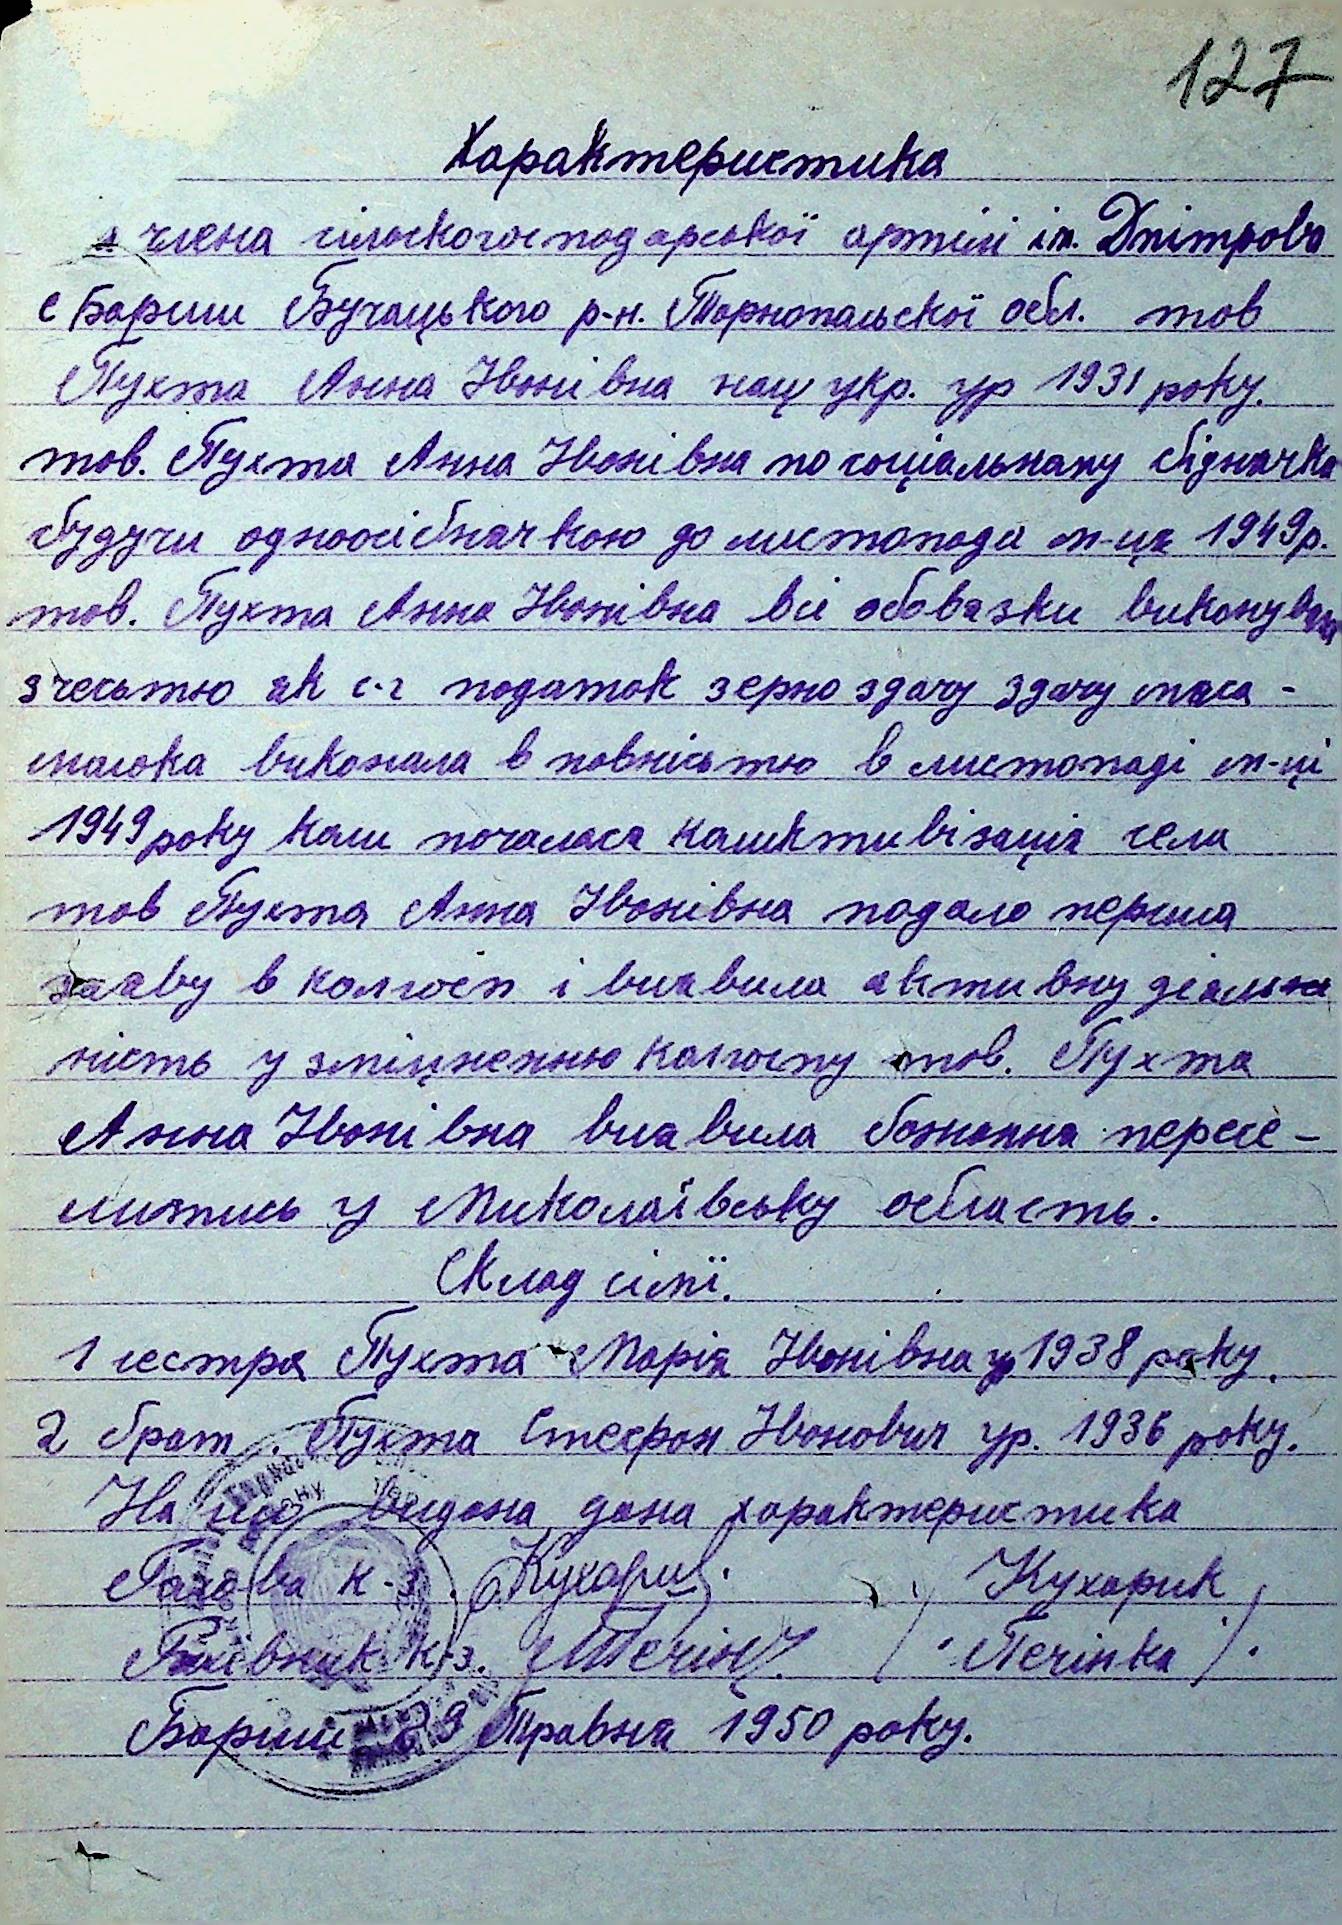 127
Характеристика
члена сільскогосподарської артілі ім. Дмітрова
с Бариш Бучацького р-н. Тернопальскої обл. тов
Пухта Анна Іванівна нац укр. ур 1931 року.
тов. Пухта Анна Іванівна по соціальному біднячка
будучи одноосібначкою до листопада м-ця 1949р.
тов. Пухта Анна Іванівна всі обовязки виконувала
з честьтю як с-г податок зерно здачу здачу мяса -
молока виконала в повністью в листопаді м-ці
1949 року коли почалася коликтивізація села
тов Пухта Анна Іванівна подало перша
заяву в колгосп і виявила активну діяльно
ність у зміцненню колгоспу тов. Пухта
Анна Іванівна виявила бажання пересе-
литись у Миколаївську область.
Склад сімї.
1 сестра Пухта Марія Іванівна ур 1938 року.
2 брат. Пухта Стефан Іванович ур. 1936 року.
На що видана дана характеристика
Голова к-з. Кухарик Кухарик
к-з. Печінка (Печінка).
Бариш 29 Травня 1950 року.